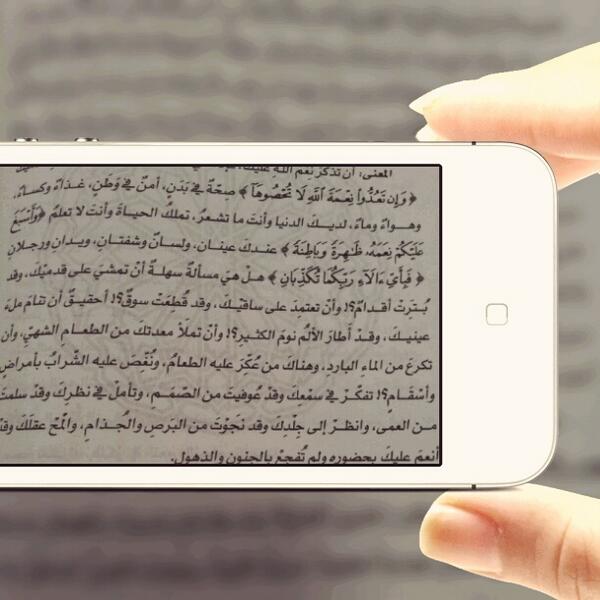 المعنى: أن تذكر نعم الله عليك
﴿ وَإِن تَعُدُّوا نِعْمَةَ اللَّهِ لَا تُحْصُوهَا ﴾ صِحَّةٌ في بَدَنٍ، أمنٌ في وَطَنٍ، غذاءٌ وكساءٌ،
وهــواءٌ وماءٌ، لديــكَ الدنيا وأنتَ ما تشعرُ، تملكُ الحياةَ وأنتَ لا تعلمُ ﴿وَأَسْبَغَ
عَلَيْكُمْ نِعَمَهُ ظَاهِرَةً وَبَاطِنَةً ﴾ عنــدكَ عينــان، ولســانٌ وشفتــانِ، ويــدانِ ورجــلانِ
﴿ فَبِأَيِّ آلَاءِ رَبِّكُمَا تُكَذِّبَانِ ﴾ هــلْ هيَ مســألةٌ سهلــةٌ أنْ تمشيَ على قدميْكَ، وقد
بُتِرَتْ أقدامٌ؟! وأنْ تعتمِدَ على ساقيْــكَ، وقد قُطِعَتْ سوقٌ؟! أحقيــقٌ أن تنامَ ملءَ
عينيــكَ، وقــدْ أطارَ الألمُ نومَ الكثيرِ؟! وأنْ تملأَ معدتكَ من الطعــامِ الشهيِّ، وأن
تكرعَ من الماءِ الباردِ، وهناكَ من عُكِّرَ عليه الطعامُ، ونُغِّصَ عليه الشَّرابُ بأمراضٍ
وأسْقَامٍ؟! تفكَّرْ في سمْعِكَ وقدْ عُوفيتَ من الصَّمَمِ، وتأملْ في نظرِكَ وقدْ سلمتَ
مــن العمى، وانظــرْ إلى جِلْدِكَ وقد نَجَوْتَ من البَرَصِ والجُــذامِ، والمَحْ عقلَكَ وقدْ
أنعمَ عليكَ بحضورِهِ ولم تُفجعْ بالجنونِ والذهولِ.